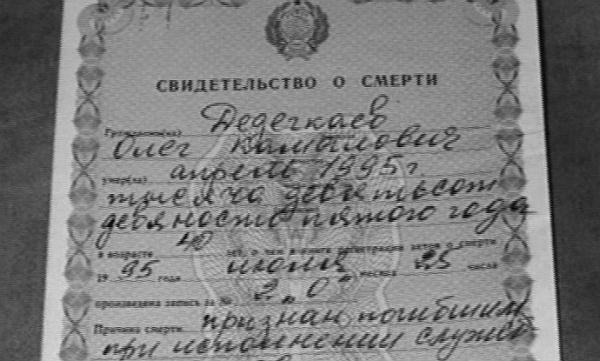 СВИДЕТЕЛЬСТВО О СМЕРТИ
Гражданин(ка) Дедегкаев
Олег Камылович
умер(ла) апрель 1995 г.
тысяча девятьсот
девяносто пятого года
в возрасте 40 лет, о чем в книге регистрации актов о смерти
19 95 года июля месяца 25 числа
произведена запись за №
Причина смерти признан погибшим
при исполнении служеб